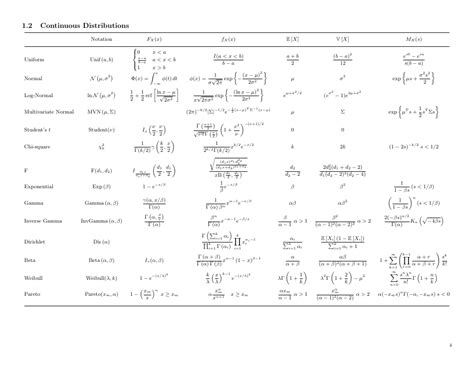 1.2 Continuous Distributions
Notation F_X(x) f_X(x) E[X] V[X] M_X(s)
Uniform Unif(a, b) { 0 x < a; (x−a)/(b−a) a < x < b; 1 x > b I(a < x < b)/(b − a) (a + b)/2 (b − a)²/12 (e^{sb} − e^{sa})/(s(b − a))
Normal N(μ, σ²) Φ(x) = ∫_{−∞}^{x} φ(t) dt φ(x) = 1/(σ√(2π)) exp{−(x − μ)²/(2σ²)} μ σ² exp{μs + σ²s²/2}
Log-Normal ln N(μ, σ²) 1/2 + 1/2 erf[(ln x − μ)/√(2σ²)] 1/(x√(2πσ²)) exp{−(ln x − μ)²/(2σ²)} e^{μ+σ²/2} (e^{σ²} − 1)e^{2μ+σ²}
Multivariate Normal MVN(μ, Σ) (2π)^{−k/2}|Σ|^{−1/2} e^{−½(x−μ)^T Σ^{−1}(x−μ)} μ Σ exp{μ^T s + ½ s^T Σs}
Student's t Student(ν) 0 0
Chi-square χ²_k 1/Γ(k/2) γ(k/2, x/2) 1/(2^{k/2}Γ(k/2)) x^{k/2} e^{−x/2} k 2k (1 − 2s)^{−k/2} s < 1/2
F F(d₁, d₂) d₂/(d₂ − 2) 2d₂²(d₁ + d₂ − 2)/(d₁(d₂ − 2)²(d₂ − 4))
Exponential Exp(β) 1 − e^{−x/β} 1/β e^{−x/β} β β² 1/(1 − βs) (s < 1/β)
Gamma Gamma(α, β) γ(α, x/β)/Γ(α) 1/(Γ(α)β^α) x^{α−1} e^{−x/β} αβ αβ² (1/(1 − βs))^α (s < 1/β)
Inverse Gamma InvGamma(α, β) Γ(α, β/x)/Γ(α) β^α/Γ(α) x^{−α−1} e^{−β/x} β/(α − 1) α > 1 β²/((α − 1)²(α − 2)²) α > 2 2(−βs)^{α/2}/Γ(α) K_α(√(−4βs))
Dirichlet Dir(α) Γ(∑_{i=1}^{k} α_i)/∏_{i=1}^{k} Γ(α_i) ∏_{i=1}^{k} x_i^{α_i−1} α_i/∑_{i=1}^{k} α_i E[X_i](1 − E[X_i])/(∑_{i=1}^{k} α_i + 1)
Beta Beta(α, β) I_x(α, β) Γ(α + β)/(Γ(α)Γ(β)) x^{α−1}(1 − x)^{β−1} α/(α + β) αβ/((α + β)²(α + β + 1)) 1 + ∑_{k=1}^{∞} (∏_{r=0}^{k−1} (α + r)/(α + β + r)) s^k/k!
Weibull Weibull(λ, k) 1 − e^{−(x/λ)^k} k/λ (x/λ)^{k−1} e^{−(x/λ)^k} λΓ(1 + 1/k) λ²Γ(1 + 2/k) − μ² ∑_{n=0}^{∞} s^n λ^n/n! Γ(1 + n/k)
Pareto Pareto(x_m, α) 1 − (x_m/x)^α x ≥ x_m α x_m^α/x^{α+1} x ≥ x_m αx_m/(α − 1) α > 1 x_m^α/((α − 1)²(α − 2)) α > 2 α(−x_m s)^α Γ(−α, −x_m s) s < 0